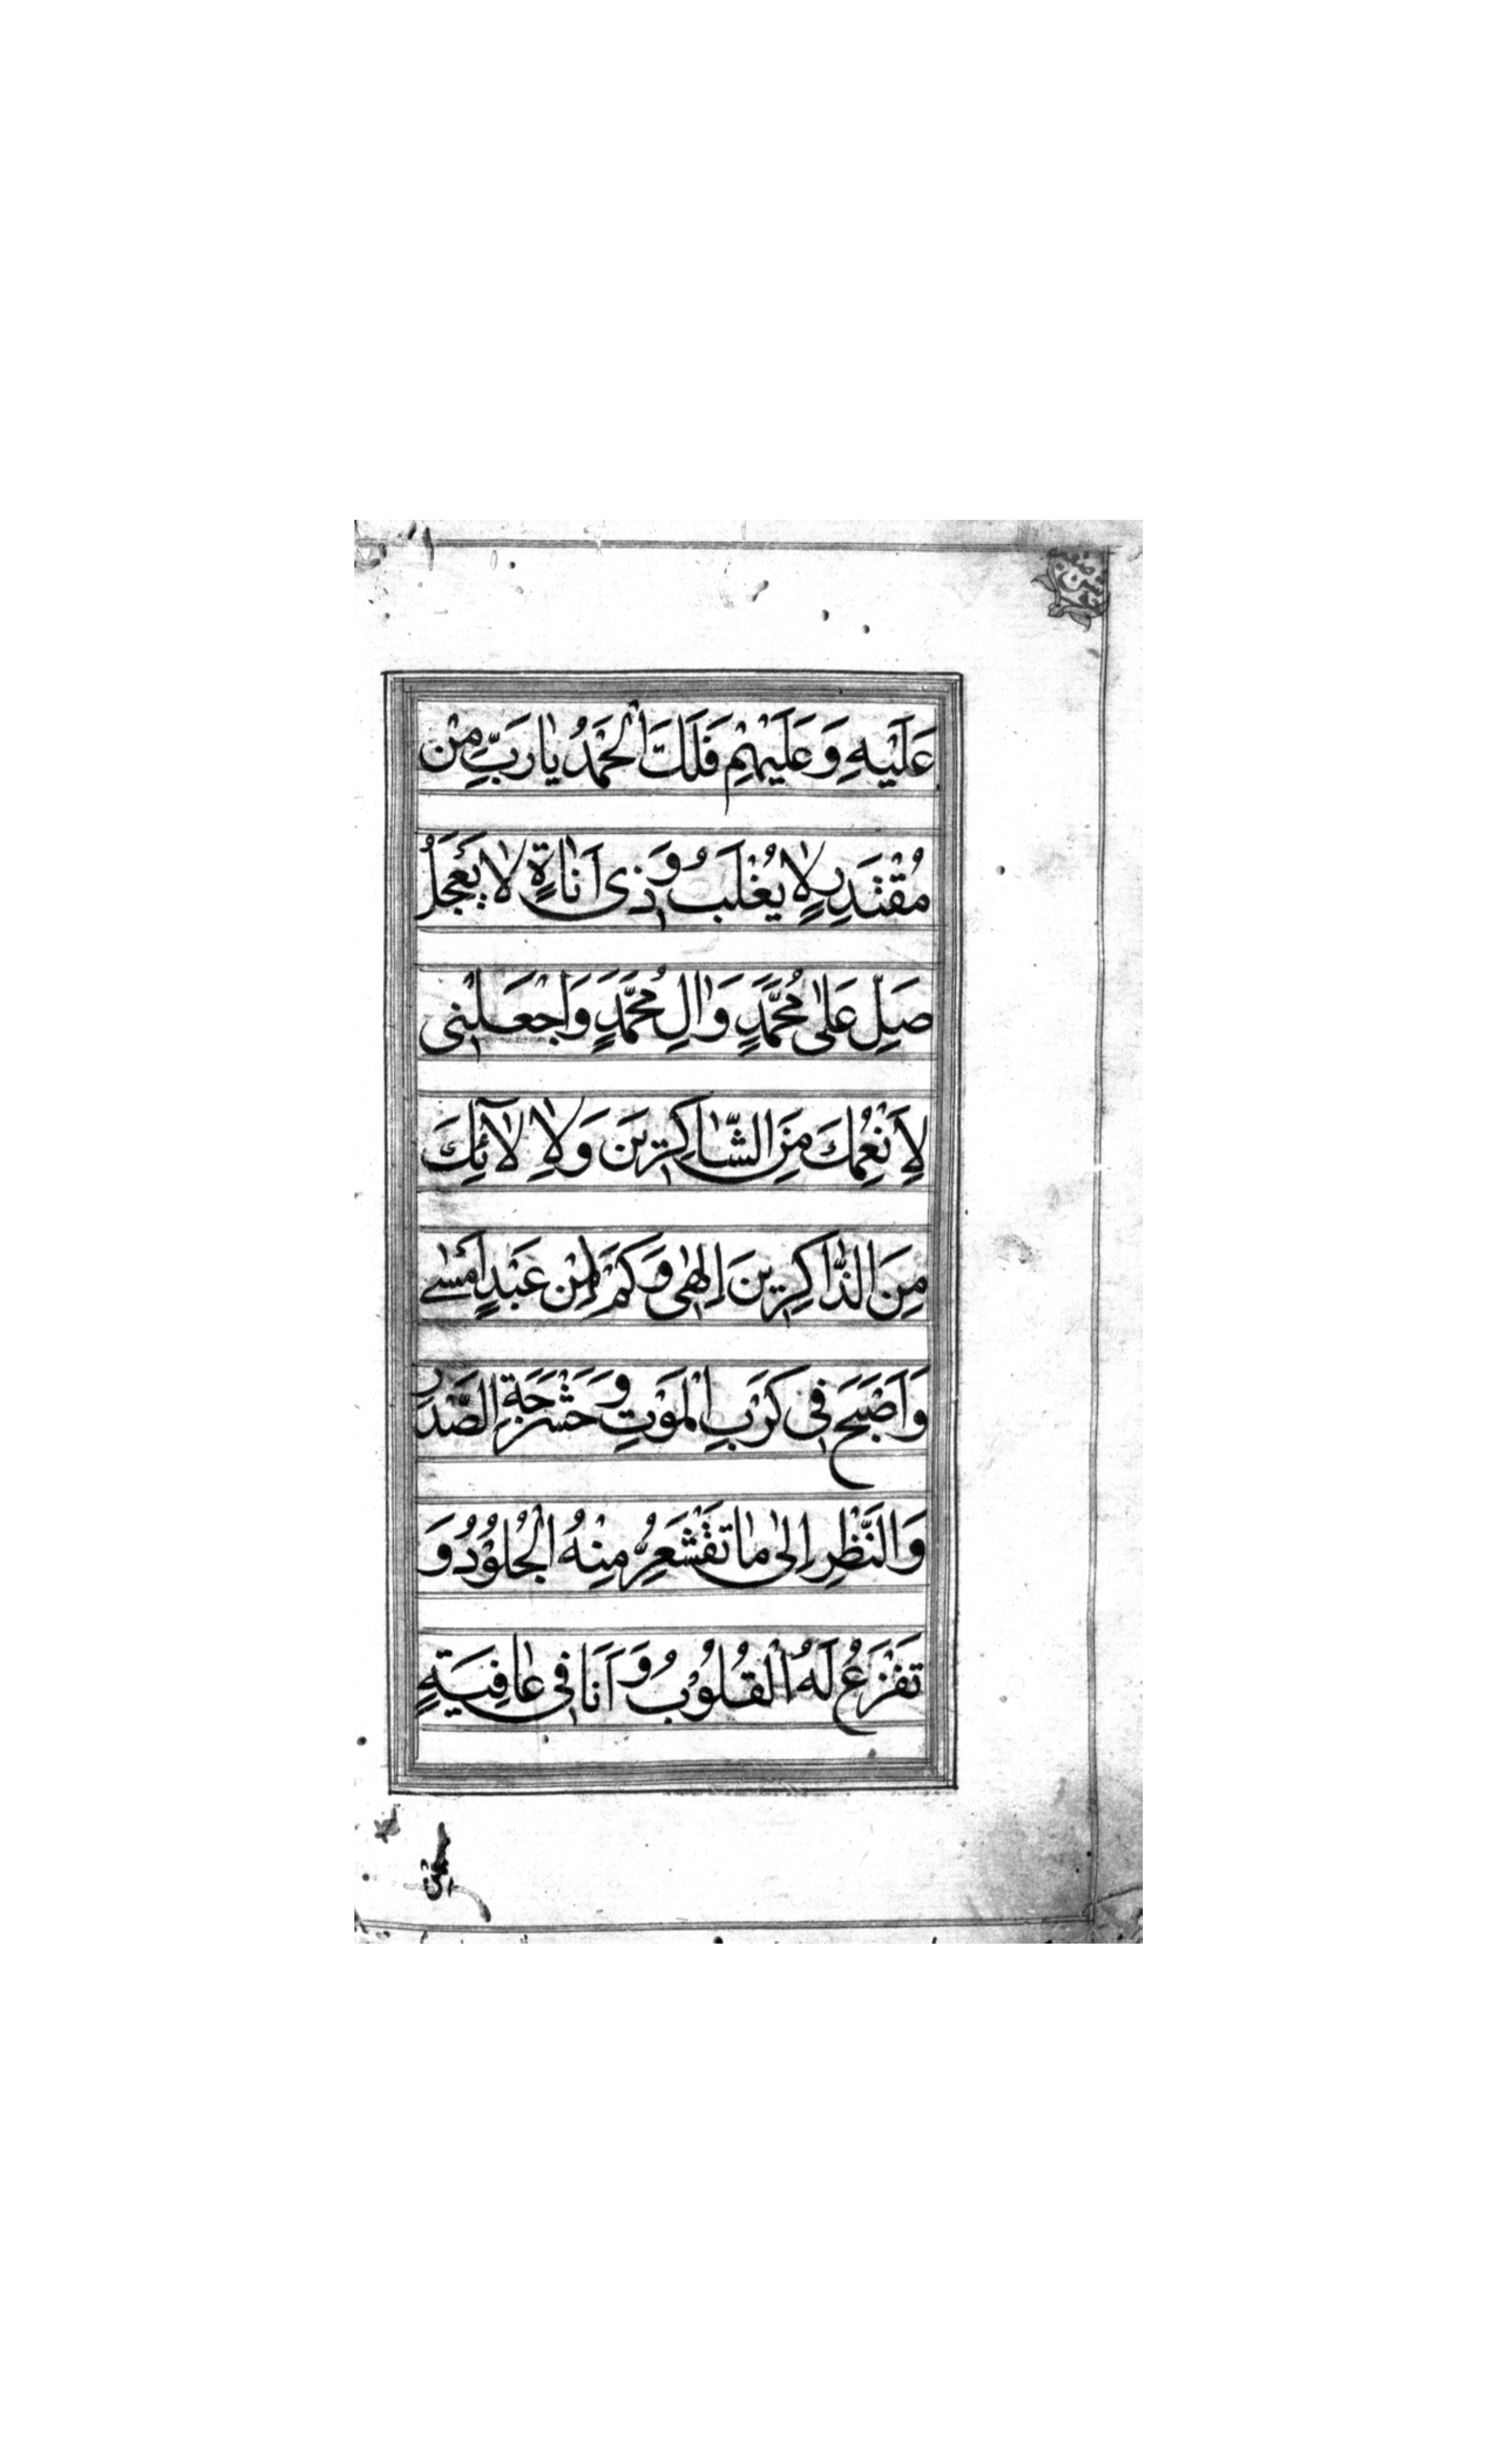 عَلَيْهِ وَعَلَيْهِمْ فَلَكَ الْحَمْدُ يٰا رَبِّ مِنْ
مُقْتَدِرٍ لٰا يُغْلَبُ وَذِى اَنٰاةٍ لٰا يَعْجَلُ
صَلِّ عَلٰى مُحَمَّدٍ وَاٰلِ مُحَمَّدٍ وَاجْعَلْنِى
لِاَنْعُمِكَ مِنَ الشّٰاكِرِينَ وَلِاٰلٰآئِكَ
مِنَ الذّٰاكِرِينَ اِلٰهِى وَكَمْ مِنْ عَبْدٍ اَمْسٰى
وَاَصْبَحَ فِى كَرْبِ الْمَوْتِ وَحَشْرَجَةِ الصَّدْرِ
وَالنَّظَرِ اِلىٰ مٰا تَقْشَعِرُّ مِنْهُ الْجُلُوْدُ وَ
تَفْزَعُ لَهُ الْقُلُوْبُ وَاَنَا فِى عٰافِيَةٍ